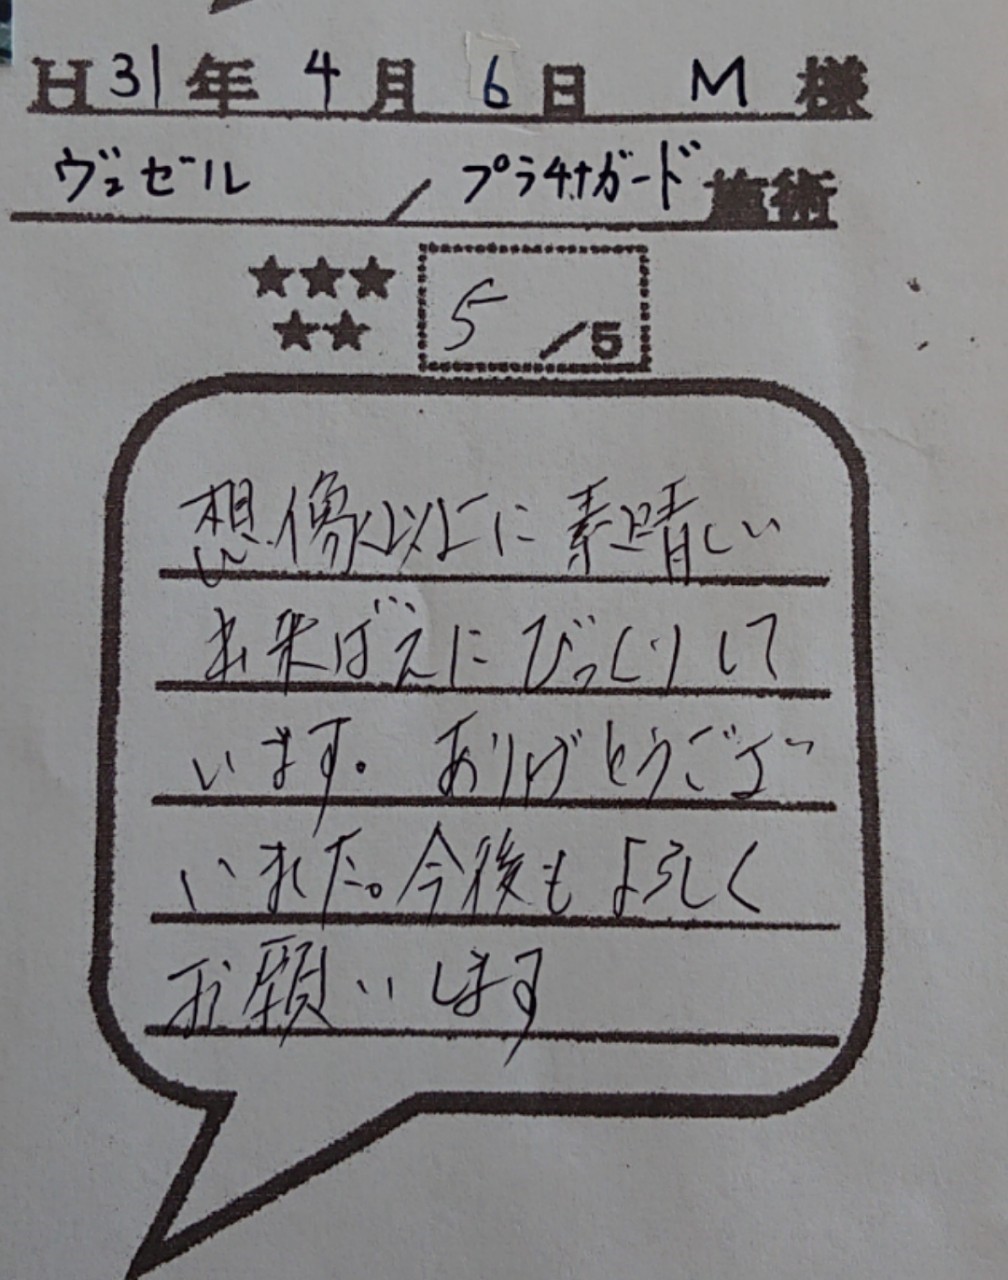 H31年 4月 6日 M 様
ヴェゼル / プラチナガード 施術
★★★
★★
5 /5
想像以上に素晴しい
出来ばえにびっくりして
います。ありがとうござ
いました。今後もよろしく
お願いします